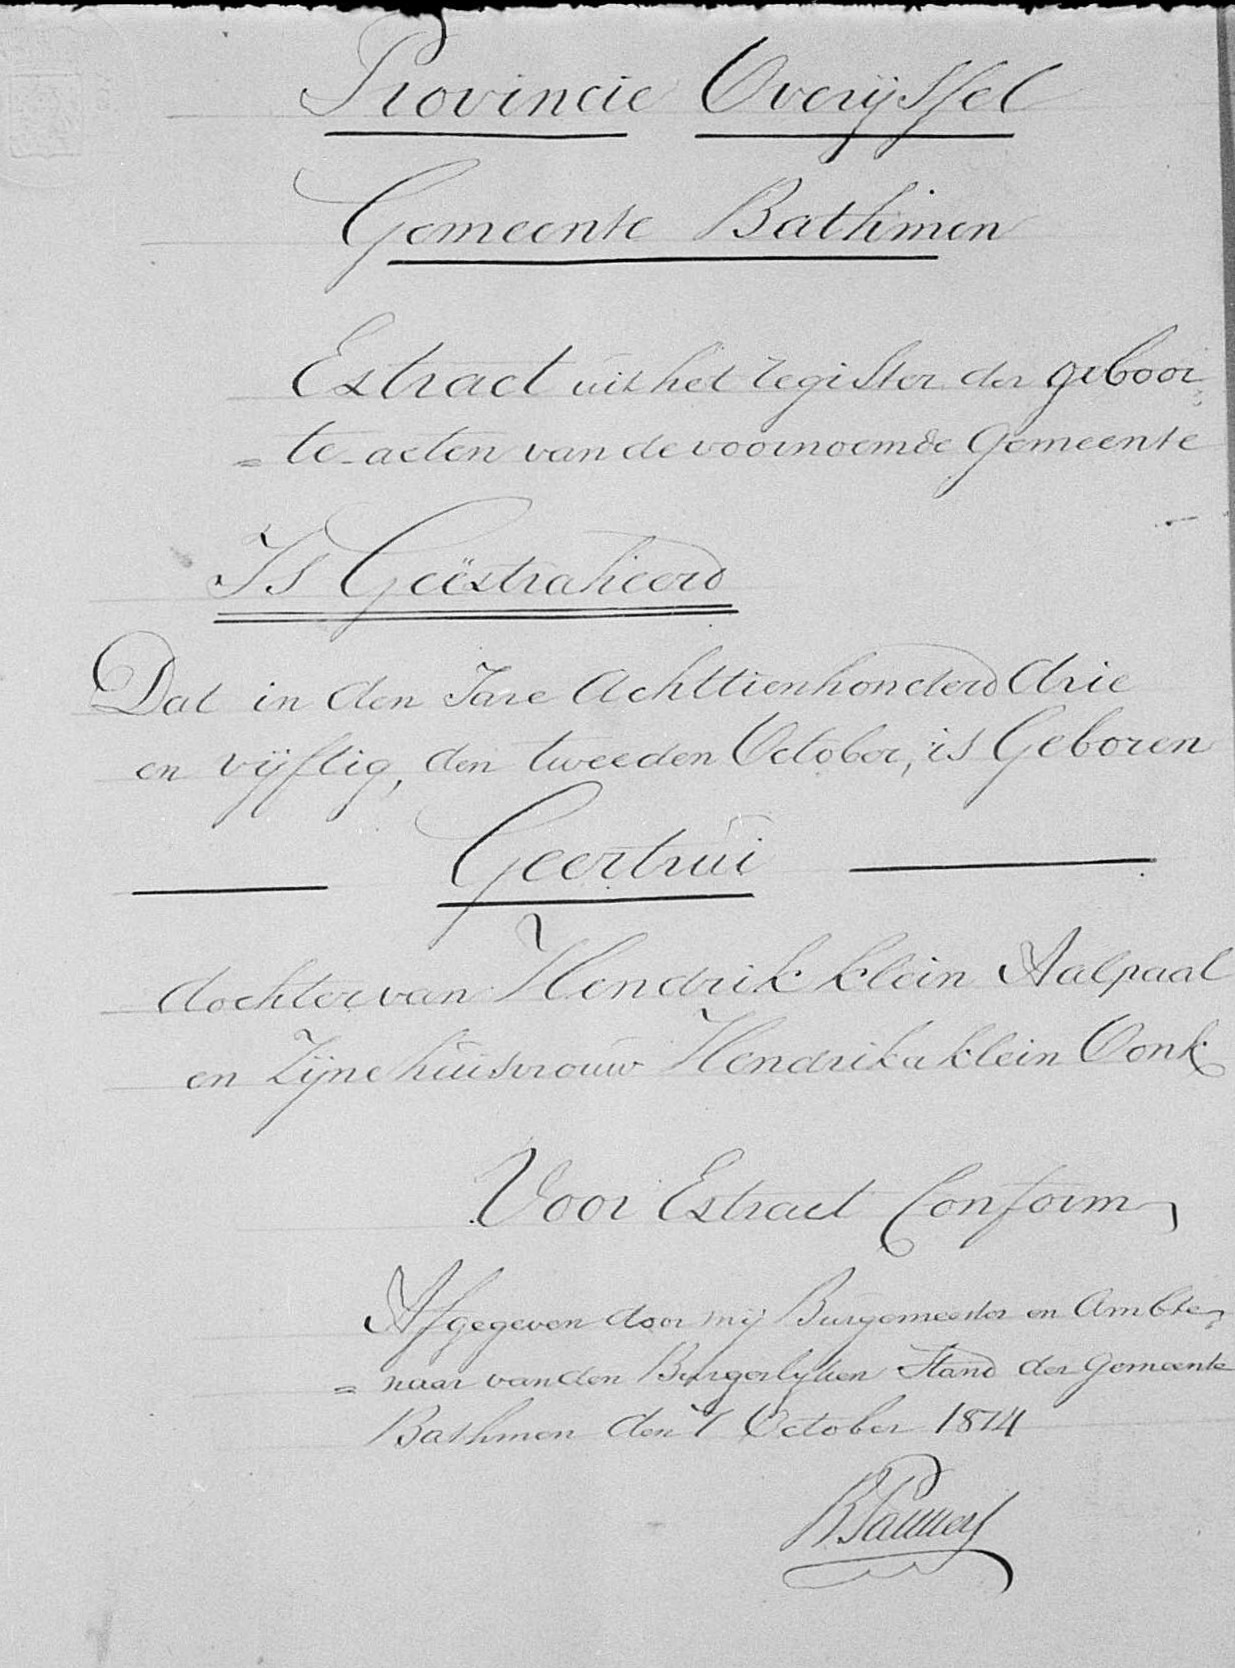 Provincie Overijssel
Gemeente Bathmen
Extract uit het register der geboor
= te-acten van de voornoemde Gemeente
Is Geëxtraheerd
Dat in den Jare Achttienhonderd drie
en vijftig, den tweeden October, is Geboren
Geertrui
dochter van Hendrik klein Aalpaal
en Zijne huisvrouw Hendrika klein Oonk
Voor Extract Conform,
Afgegeven door mij Burgemeester en Ambte,
= naar van den Burgerlijken Stand der Gemeente
Bathmen den 7 October 1874